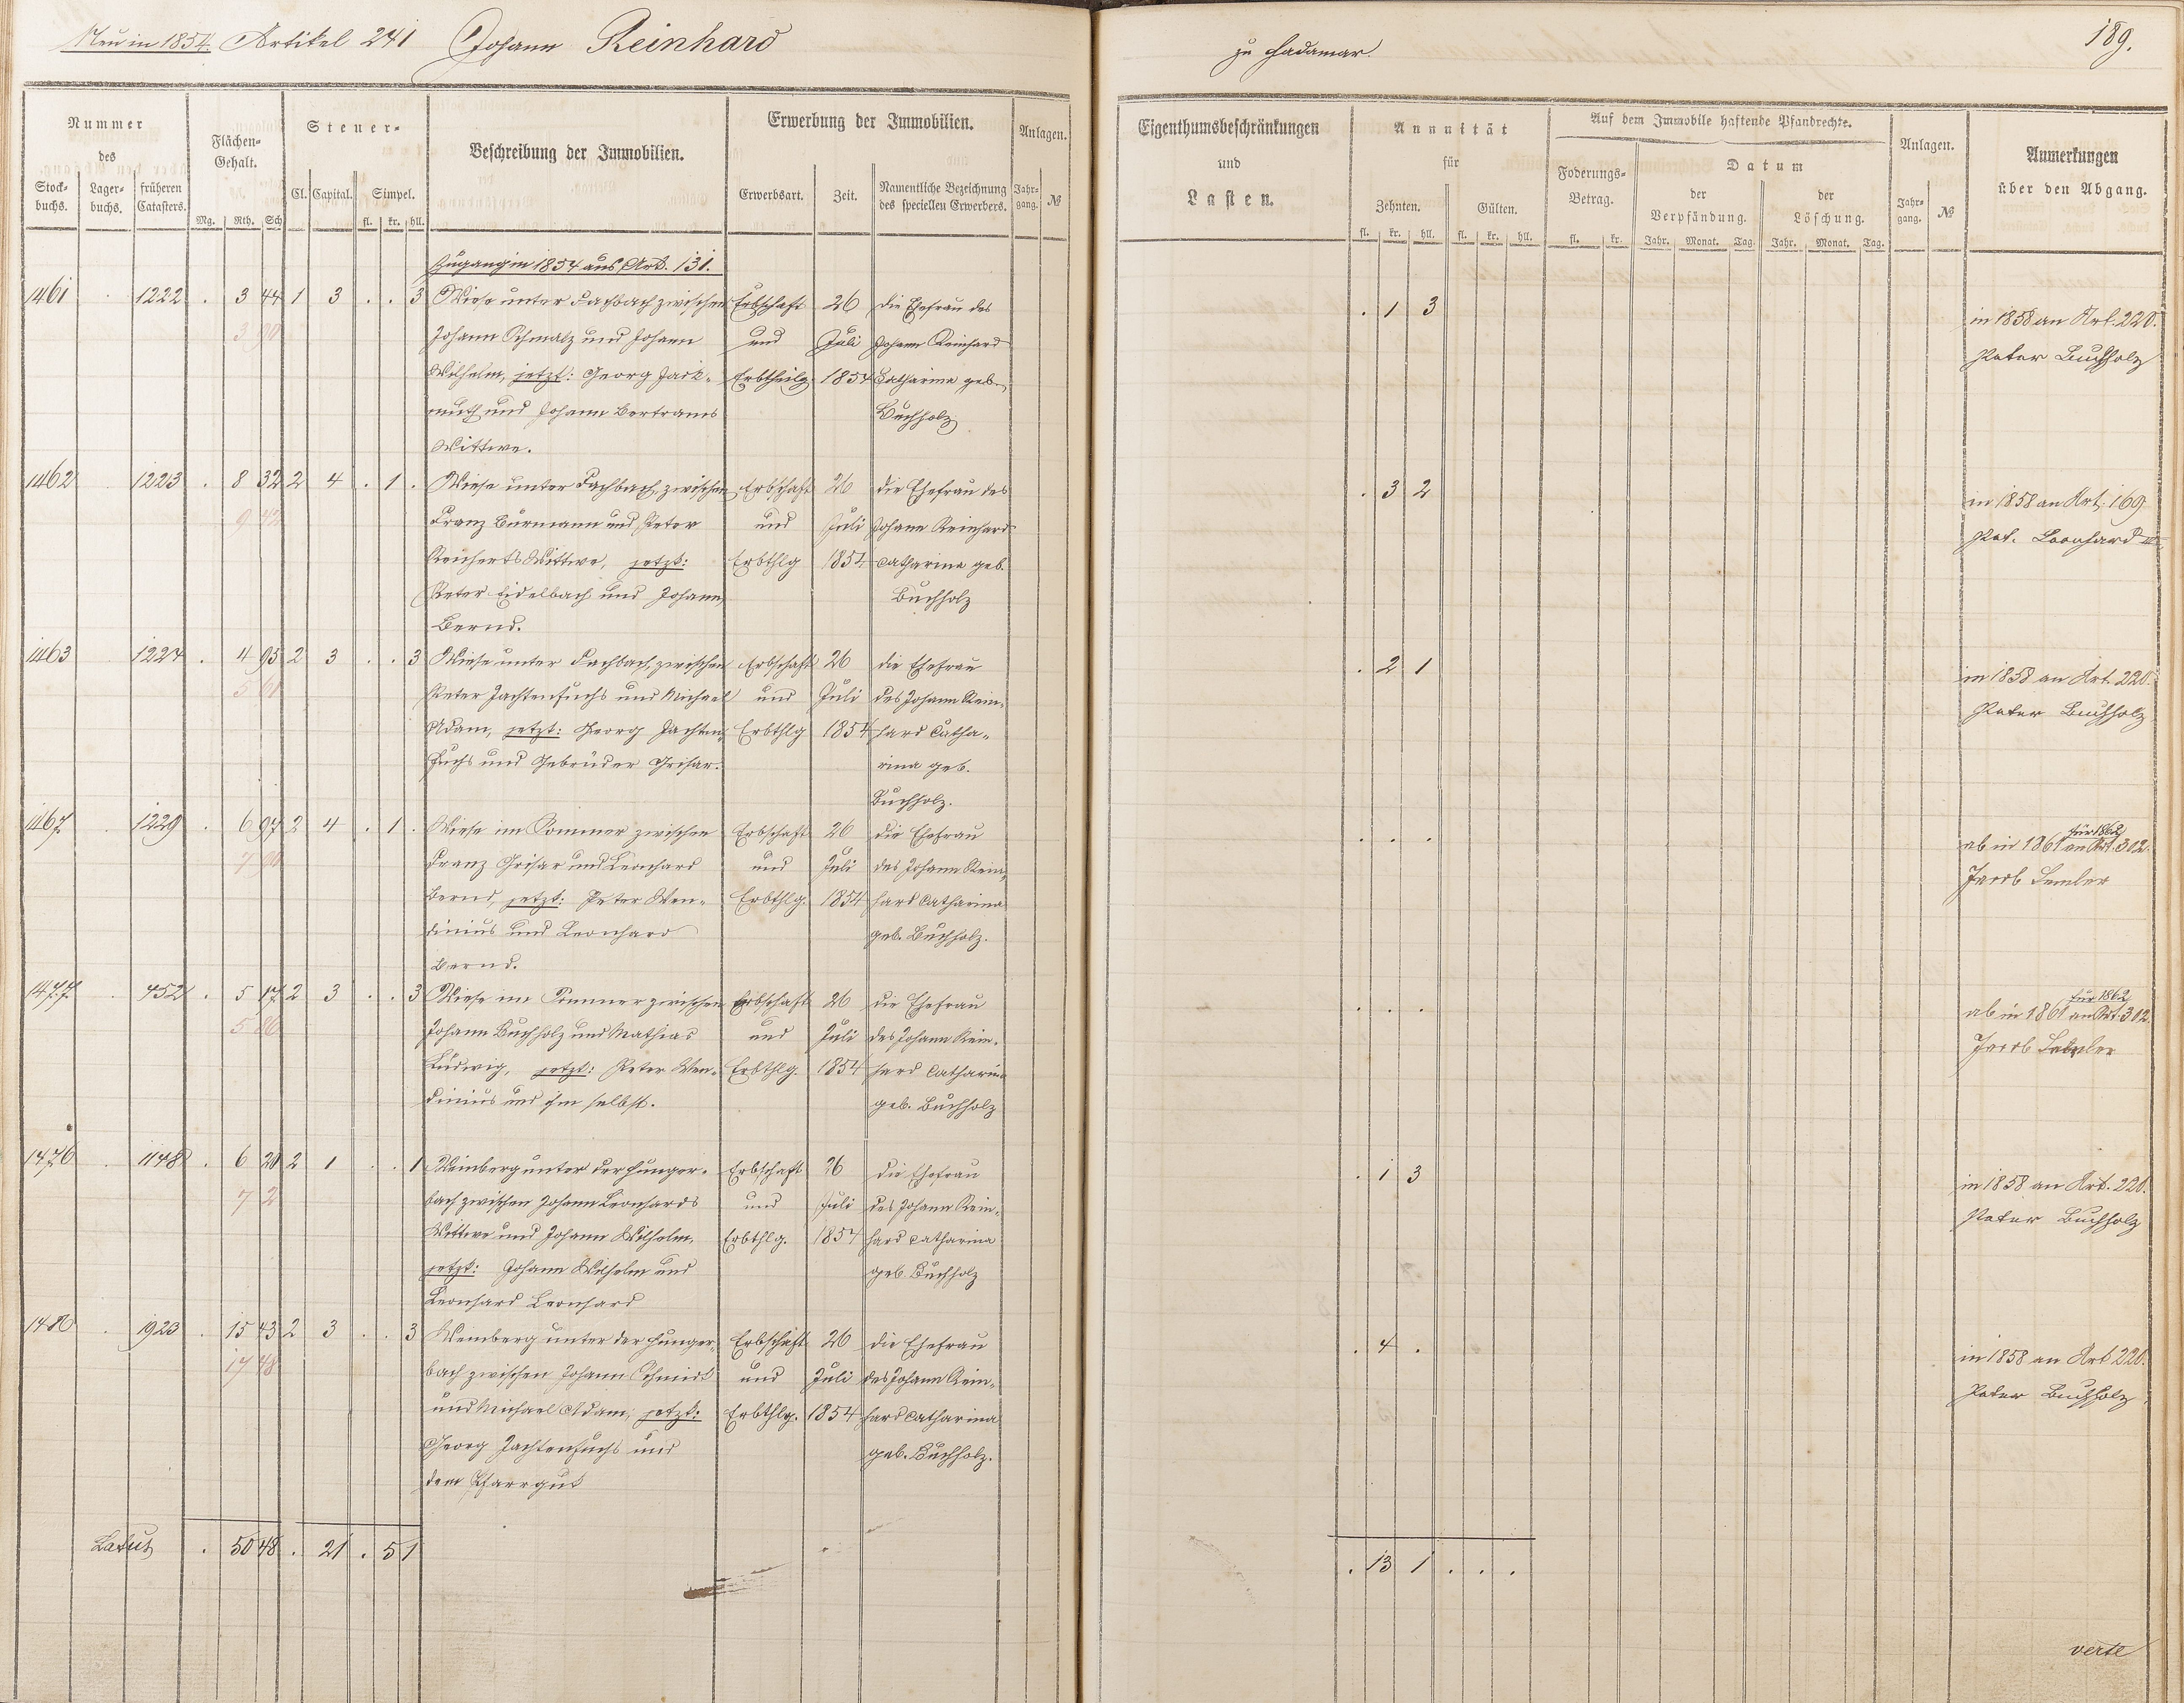 Neu in 1854. Artikel 241 Johann Reinhard
zu Hadamar.
189.
Nummer
des
Stock-buchs. Lager-buchs. früheren Catasters.
Flächen-Gehalt.
Mg. Rth. Sch.
Steuer-
Cl. Capital. Simpel.
fl. kr. hll.
Beschreibung der Immobilien.
Erwerbung der Immobilien.
Erwerbsart. Zeit. Namentliche Bezeichnung des speciellen Erwerbers.
Anlagen.
Jahr-gang. №
Eigenthumsbeschränkungen
und
Lasten.
Annuität
für
Zehnten. Gülten.
fl. kr. hll. fl. kr. hll.
Auf dem Immobile haftende Pfandrechte.
Foderungs-Betrag.
fl. kr.
Datum
der Verpfändung. der Löschung.
Jahr. Monat. Tag. Jahr. Monat. Tag.
Anlagen.
Jahr-gang. №
Anmerkungen
über den Abgang.
Zugang in 1854 aus Art. 131.
1461 . 1222 . 3 44 1 3 . . 3 Wiese unter Fachbach zwischen Erbschaft 26 die Ehefrau des . 1 3 in 1858 an Art. 220.
3 90 Johann Schmalz und Johann und Juli Johann Reinhard Peter Buchholz
Wilhelm, jetzt: Georg Jack- Erbtheilg. 1854 Catharina geb.
muth und Johann Bertrams Buchholz
Wittwe.
1462 . 1223 . 8 32 2 4 . 1 . Wiese unter Fachbach, zwischen Erbschaft 26 die Ehefrau des . 3 2 in 1858 an Art. 169
9 42 Franz Burmann und Peter und Juli Johann Reinhard Pet. Leonhard III
Reicherts Wittwe, jetzt: Erbthlg 1854 Catharina geb.
Peter Eidelbach und Johann Buchholz
Bernd.
1463 1224 . 4 95 2 3 . . 3 Wiese unter Fachbach, zwischen Erbschaft 26 die Ehefrau . 2 1 in 1858 an Art. 220.
5 61 Peter Jachtenfuchs und Michael und Juli des Johann Rein- Peter Buchholz
Adam, jetzt: Georg Jachten- Erbthlg 1854 hard Catha-
fuchs und Gebrüder Grisar. rina geb.
Buchholz.
1467 . 1229 . 6 97 2 4 . 1 . Wiese im Sommer zwischen Erbschaft 26 die Ehefrau . . . ab in 1861 für 1862 an Art. 302.
7 90 Franz Grisar und Leonhard und Juli des Johann Rein- Jacob Semler
Bernd, jetzt: Peter Wen- Erbthlg. 1854 hard Catharina
dinius und Leonhard geb. Buchholz.
Bernd.
1477 . 452 . 5 17 2 3 . . 3 Wiese im Sommer zwischen Erbschaft 26 die Ehefrau . . . ab in 1861 für 1862 an Art. 302.
5 86 Johann Buchholz und Mathias und Juli des Johann Rein- Jacob Semler
Ludwig, jetzt: Peter Wen- Erbthlg. 1854 hard Catharina
dinius und ihm selbst. geb. Buchholz
1476 . 1148 . 6 20 2 1 . . 1 Weinberg unter der Hunger- Erbschaft 26 die Ehefrau . 1 3 in 1858 an Art. 220.
7 2 bach zwischen Johann Leonhards und Juli des Johann Rein- Peter Buchholz
Wittwe und Johann Wilhelm, Erbthlg. 1854 hard Catharina
jetzt: Johann Wilhelm und geb. Buchholz
Leonhard Leonhard
1480 . 1923 . 15 43 2 3 . . 3 Weinberg unter der Hunger- Erbschaft 26 die Ehefrau . 4 . in 1858 an Art 220.
17 48 bach zwischen Johann Schmidt und Juli des Johann Rein- Peter Buchholz
und Michael Adam, jetzt: Erbthlg. 1854 hard Catharina
Georg Jachtenfuchs und geb. Buchholz.
dem Pfarrgut
Latus . 50 48 . 21 . 5 1 . 13 1 . . .
verte